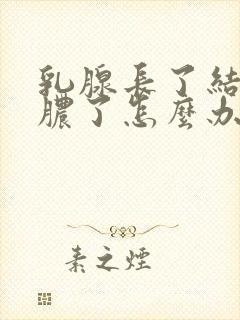 乳腺長了結
膿了怎麼办
素之煙